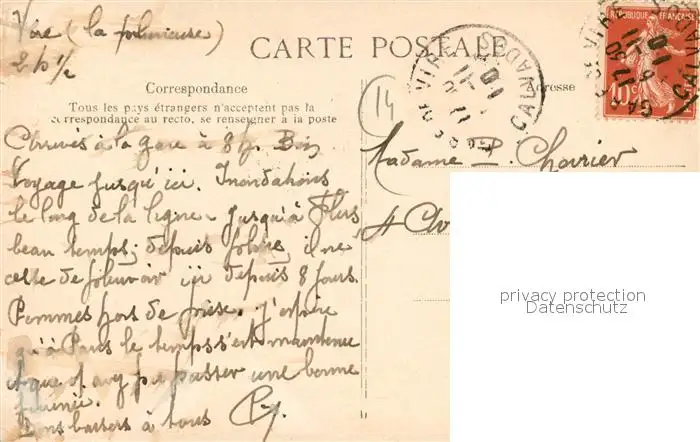 Vire (la pluvieuse)
2 h ½
CARTE POSTALE
Correspondance
Adresse
Tous les pays étrangers n'acceptent pas la
correspondance au recto, se renseigner à la poste
14
GARE DE VIRE
CALVADOS
RÉPUBLIQUE FRANÇAISE
10c
Arrivés à la gare à 8h. Bon
Voyage jusqu'ici. Inondations
le long de la ligne. Jusqu'à Flers
beau temps; depuis pluie, il ne
cesse de pleuvoir ici depuis 8 jours.
Pommes hors de prise. J'espère
qu'à Paris le temps s'est maintenu
et que avez pu passer une bonne
journée.
Bons baisers à tous
Madame P.
4
privacy protection
Datenschutz